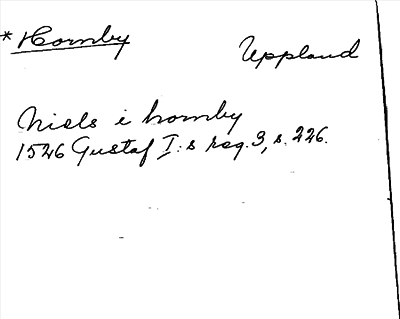 *Hornby
Uppland
Niels i hornby
1526 Gustaf I:s reg. 3, s. 226.